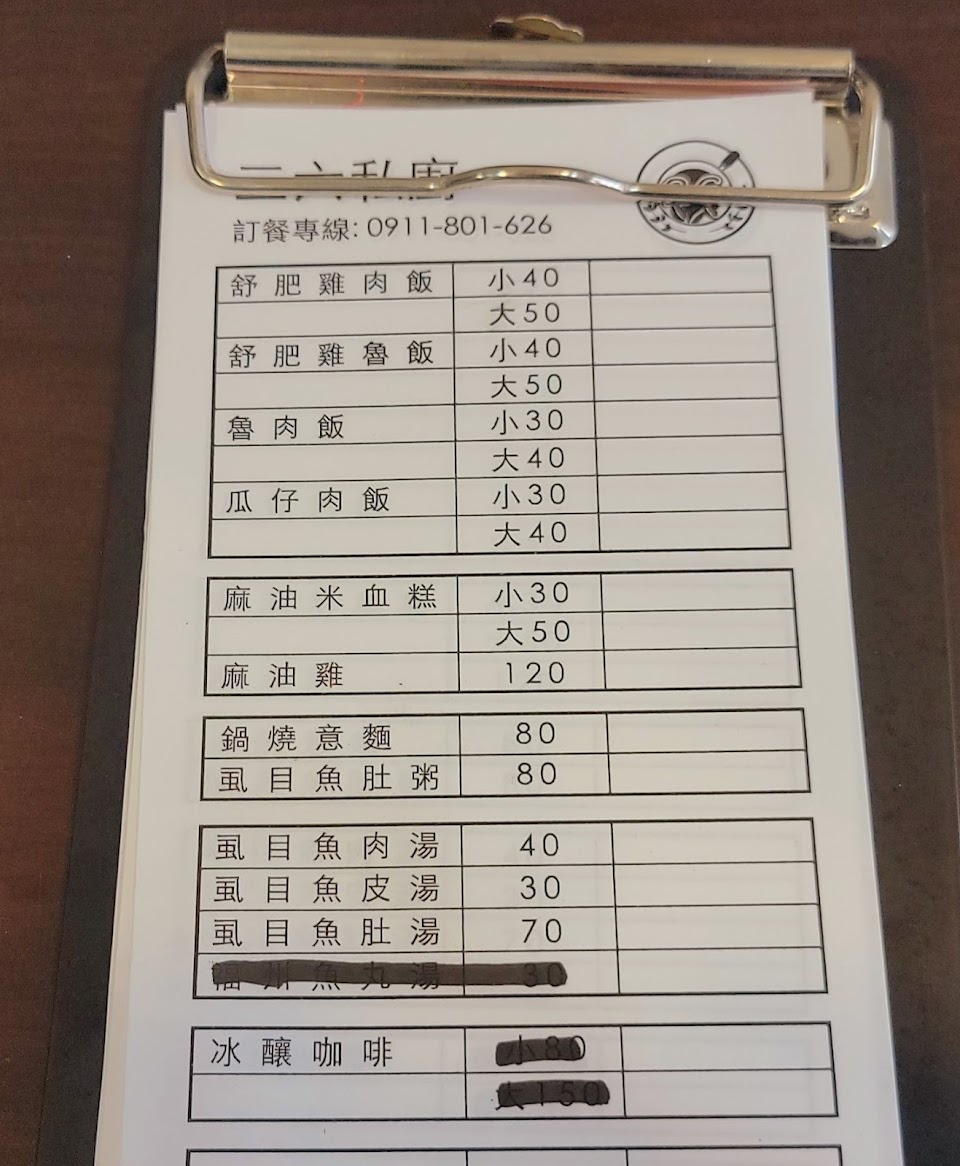 三六私廚
訂餐專線: 0911-801-626
舒肥雞肉飯 小40
大50
舒肥雞魯飯 小40
大50
魯肉飯 小30
大40
瓜仔肉飯 小30
大40
麻油米血糕 小30
大50
麻油雞 120
鍋燒意麵 80
虱目魚肚粥 80
虱目魚肉湯 40
虱目魚皮湯 30
虱目魚肚湯 70
福州魚丸湯 30
冰釀咖啡 小80
大150